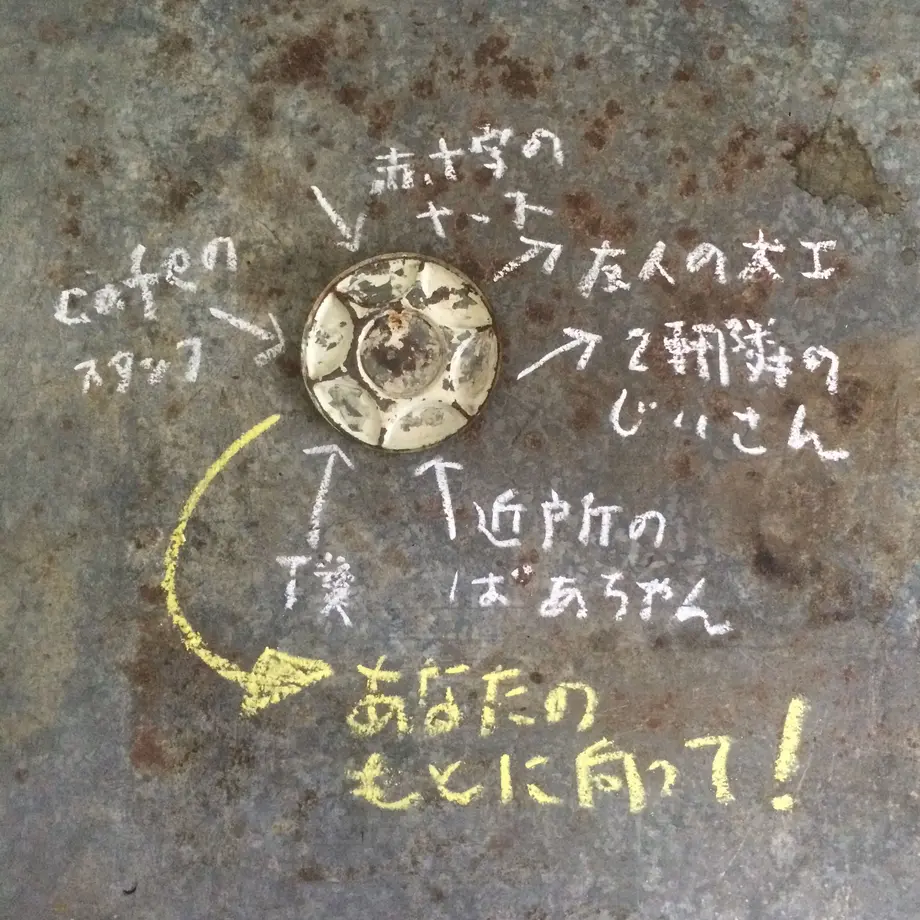 赤十字の
ナース
cafeの
スタッフ
友人の大工
2軒隣の
じいさん
近所の
ばあちゃん
僕
あなたの
もとに向って!